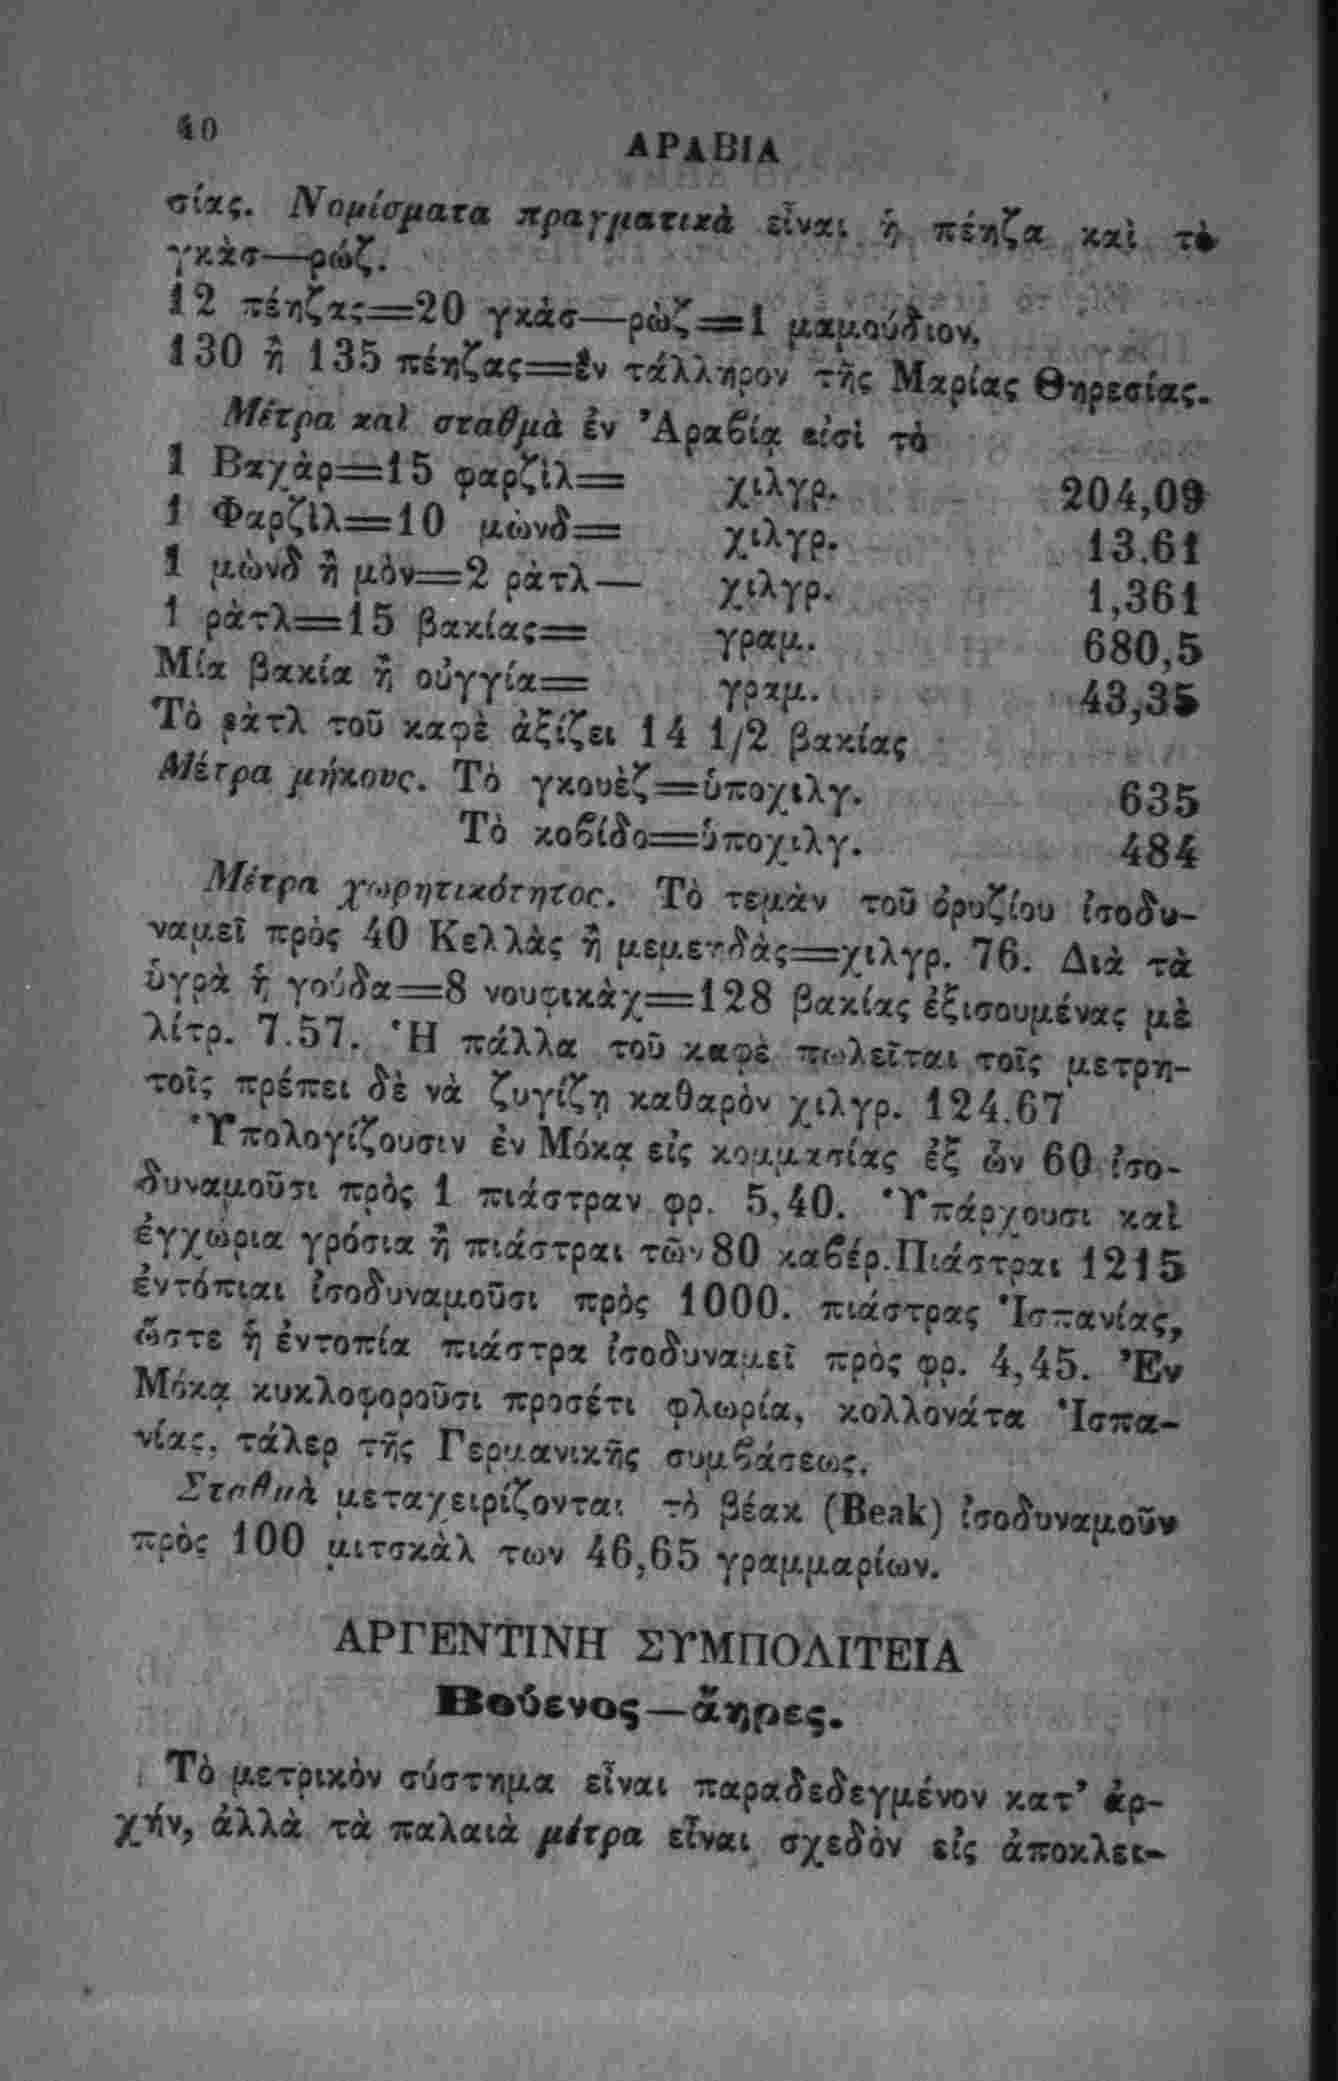 40
ΑΡΑΒΙΑ
σίας. Νομίσματα πραγματικὰ εἶναι ἡ πέηζα καὶ τὸ
γκὰσ—ρώζ.
12 πέηζας=20 γκὰσ—ρὼζ=1 μαμούδιον.
130 ἢ 135 πέηζας=ἓν τάλληρον τῆς Μαρίας Θηρεσίας.
Μέτρα καὶ σταθμὰ ἐν Ἀραβίᾳ εἰσὶ τὸ
1 Βαχὰρ=15 φαρζὶλ= χιλγρ. 204,09
1 Φαρζὶλ=10 μὼνδ= χιλγρ. 13.61
1 μὼνδ ἢ μὸν=2 ρὰτλ— χιλγρ. 1,361
1 ρὰτλ=15 βακίας= γραμ. 680,5
Μία βακία ἢ οὐγγία= γραμ. 43,35
Τὸ ρὰτλ τοῦ καφὲ ἀξίζει 14 1/2 βακίας
Μέτρα μήκους. Τὸ γκουὲζ=ὑποχιλγ. 635
Τὸ κοβίδο=ὑποχιλγ. 484
Μέτρα χωρητικότητος. Τὸ τεμὰν τοῦ ὀρυζίου ἰσοδυ-
ναμεῖ πρὸς 40 Κελλὰς ἢ μεμετδὰς=χιλγρ. 76. Διὰ τὰ
ὑγρὰ ἡ γούδα=8 νουφικὰχ=128 βακίας ἐξισουμένας μὲ
λίτρ. 7.57. Ἡ πάλλα τοῦ καφὲ πωλεῖται τοῖς μετρη-
τοῖς πρέπει δὲ νὰ ζυγίζῃ καθαρὸν χιλγρ. 124.67
Ὑπολογίζουσιν ἐν Μόκᾳ εἰς κομμασίας ἐξ ὧν 60 ἰσο-
δυναμοῦσι πρὸς 1 πιάστραν φρ. 5,40. Ὑπάρχουσι καὶ
ἐγχώρια γρόσια ἢ πιάστραι τῶν 80 καβέρ. Πιάστραι 1215
ἐντόπιαι ἰσοδυναμοῦσι πρὸς 1000. πιάστρας Ἰσπανίας,
ὥστε ἡ ἐντοπία πιάστρα ἰσοδυναμεῖ πρὸς φρ. 4,45. Ἐν
Μόκᾳ κυκλοφοροῦσι προσέτι φλωρία, κολλονάτα Ἱσπα-
νίας, τάλερ τῆς Γερμανικῆς συμβάσεως.
Σταθμὰ μεταχειρίζονται τὸ βέακ (Beak) ἰσοδυναμοῦν
πρὸς 100 μιτσκὰλ των 46,65 γραμμαρίων.
ΑΡΓΕΝΤΙΝΗ ΣΥΜΠΟΛΙΤΕΙΑ
Βούενος—ἄηρες.
Τὸ μετρικὸν σύστημα εἶναι παραδεδεγμένον κατ' ἀρ-
χήν, ἀλλὰ τὰ παλαιὰ μέτρα εἶναι σχεδὸν εἰς ἀποκλει-